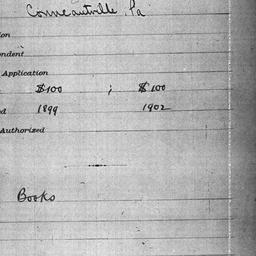 Conneautville, Pa
ion
ondent
Application
$100 ; $100
d 1899 1902
Authorized
Books